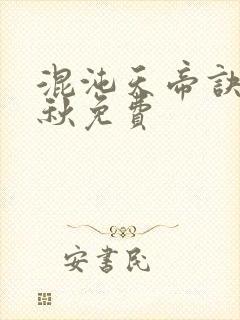 混沌天帝訣
秋免費
安書民